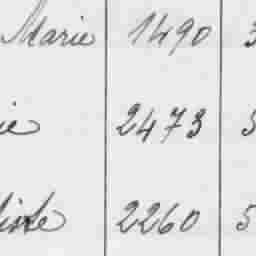 Marie 1490 3
ie 2473 5
liste 2260 5